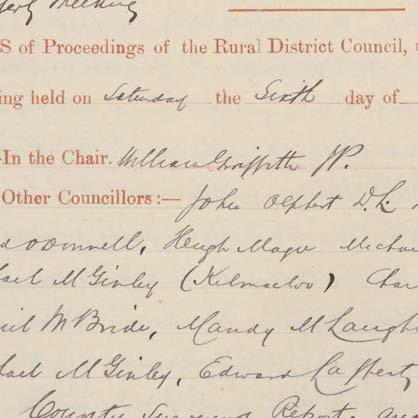 Meeting
S of Proceedings of the Rural District Council,
ing held on Saturday the Sixth day of
In the Chair. William Griffith JP.
Other Councillors:— John Olphert D.L.
O'Donnell, Hugh Magee Michael
McGinley (Kilmacloo) Char
McBride, Mandy McLaugh
McGinley, Edward Lafferty
County Surveyors Report